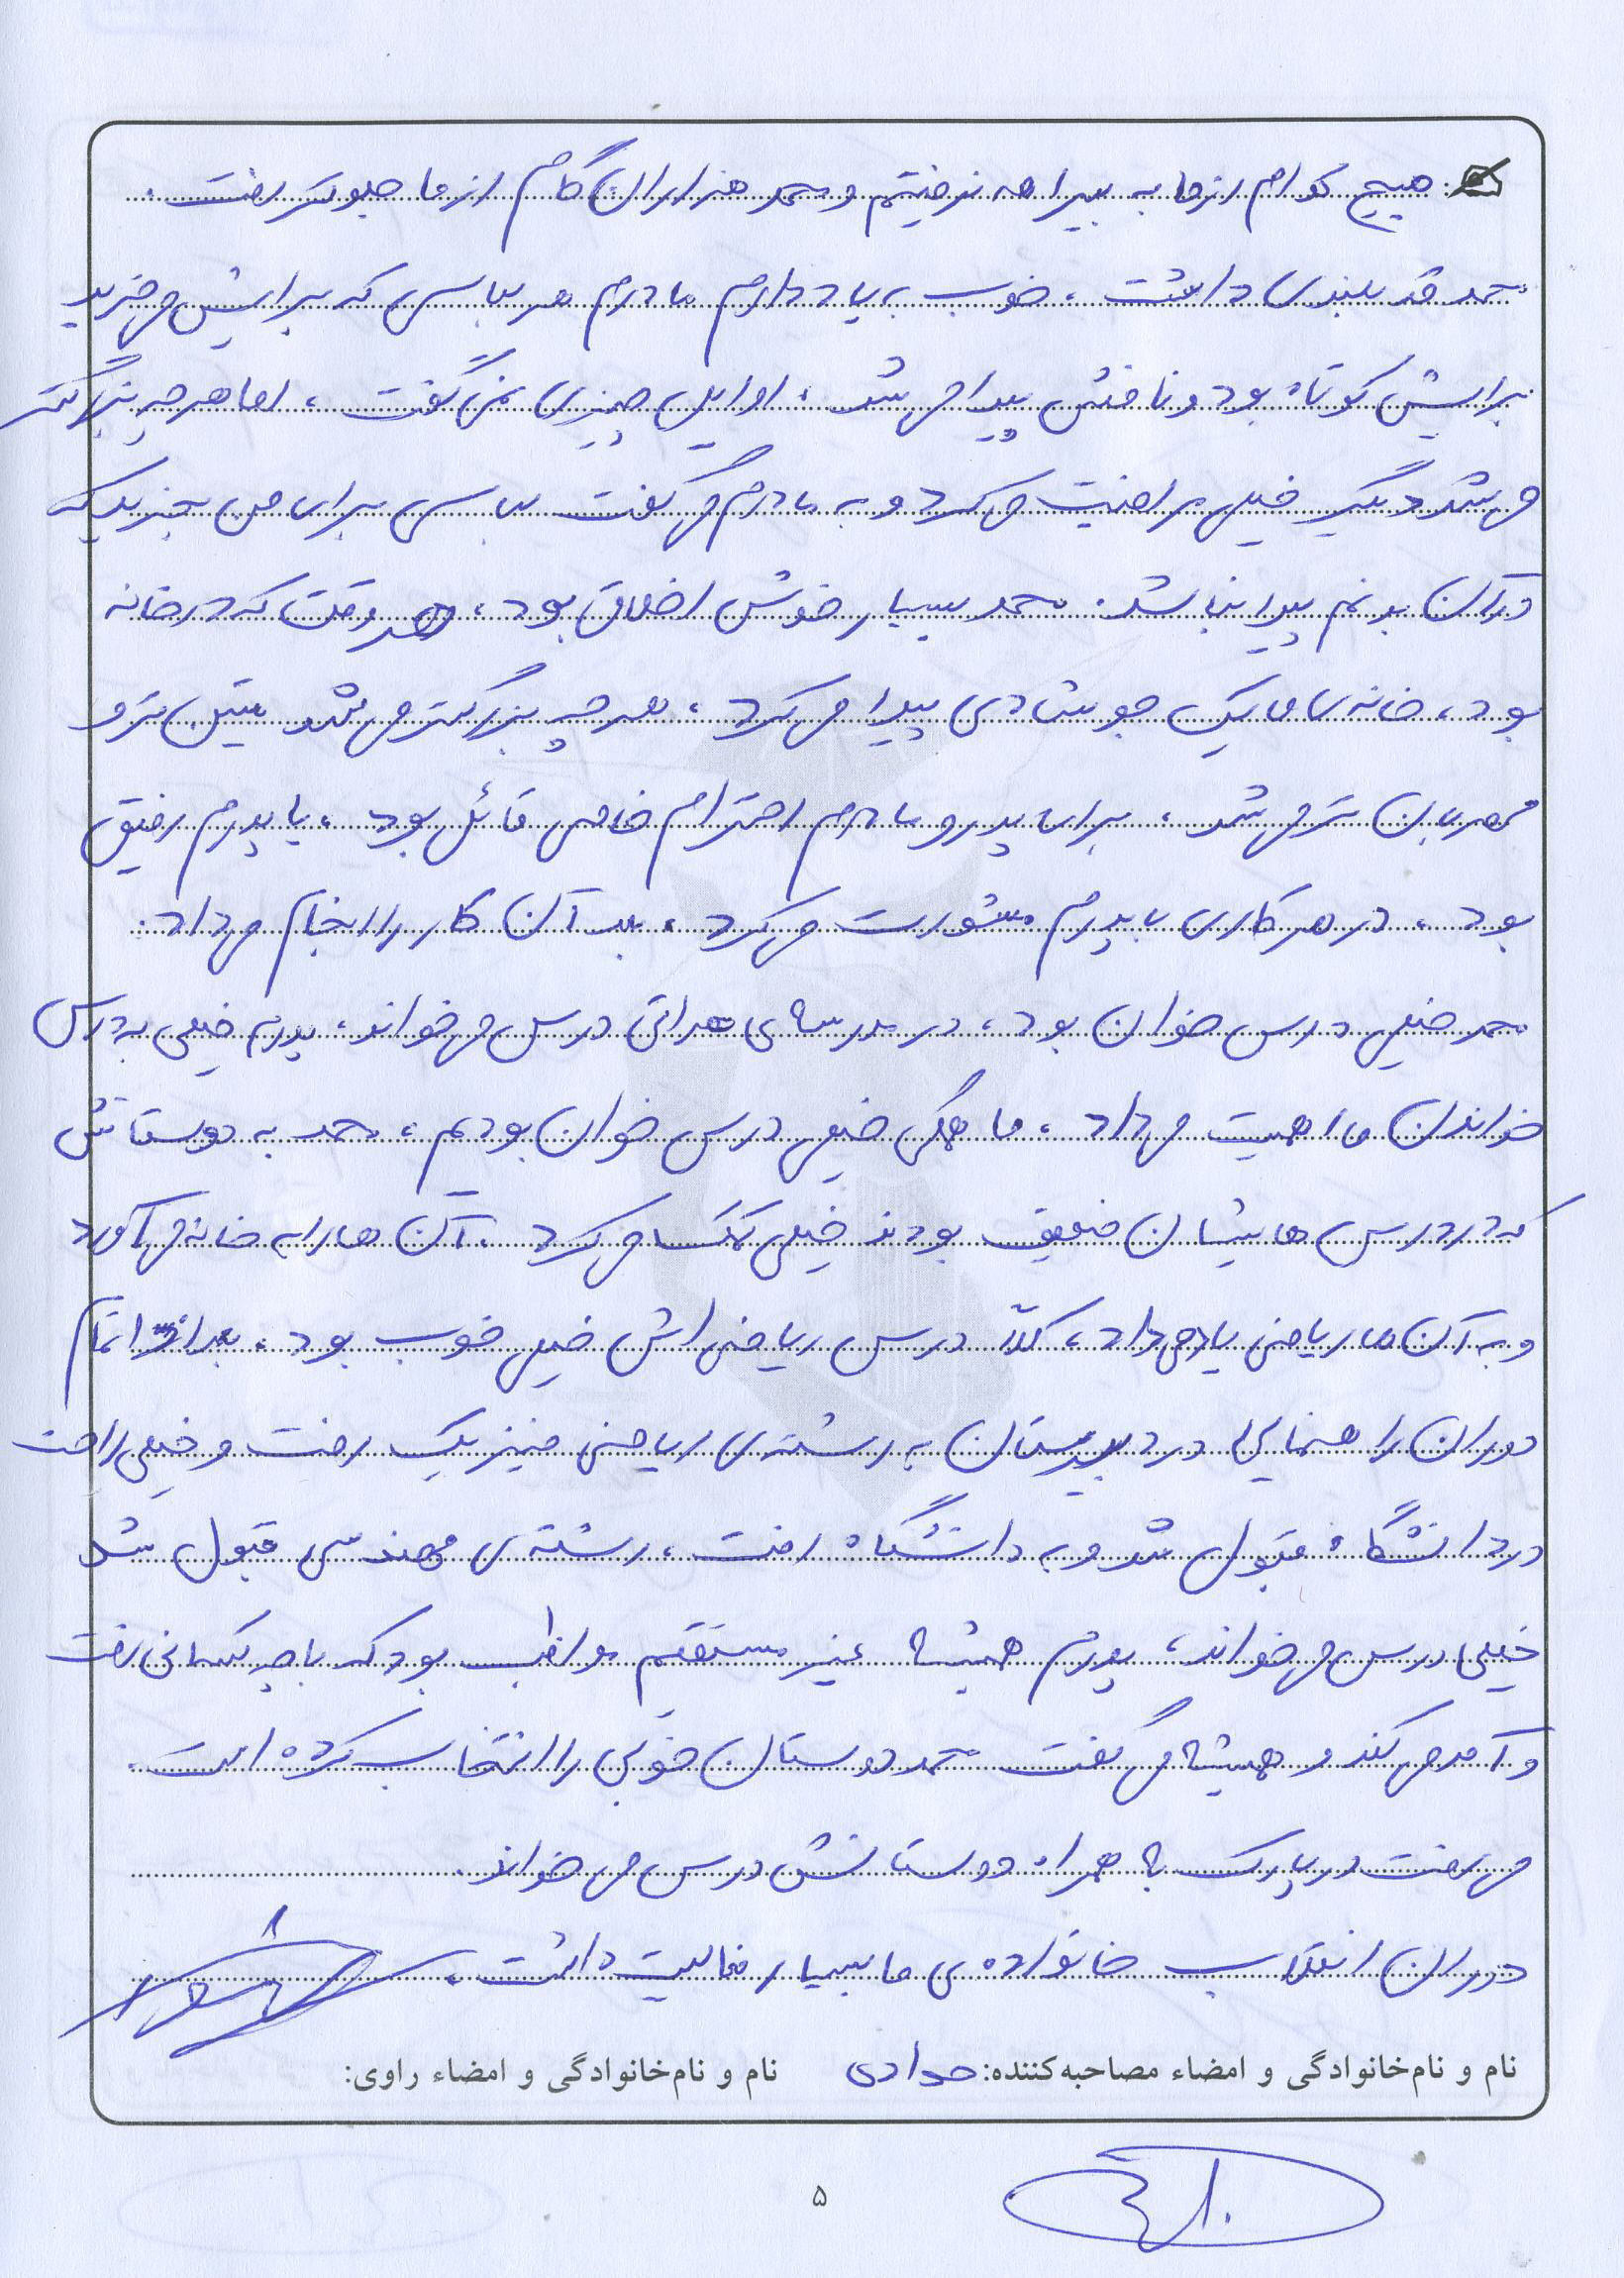 هیچ کدام از ما به بیراهه نرفتیم و محمد هزاران گام از ما جلوتر رفت.
محمد قد بلندی داشت، خوب به یاد دارم مادرم هر لباسی که برایش می خرید
برایش کوتاه بود و نافش پیدا می شد، اوایل چیزی نمی گفت، اما هر چه بزرگتر
می شد دیگر خیلی مراعات می کرد و به مادرم می گفت لباسی برای من بخرید که
در آن بدنم پیدا نباشد. محمد بسیار خوش اخلاق بود، هر وقت که در خانه
بود، خانه ی ما یک جو شادی پیدا می کرد، هر چه بزرگتر می شد متین تر و
مهربان تر می شد، برای پدر و مادرم احترام خاصی قائل بود، با پدرم رفیق
بود، در هر کاری با پدرم مشورت می کرد، بعد آن کار را انجام می داد.
محمد خیلی درس خوان بود، در مدرسه ی درس می خواند، پدرم خیلی به درس
خواندن ما اهمیت می داد، ما همگی خیلی درس خوان بودیم، محمد به دوستانش
که در درس هایشان ضعیف بودند خیلی کمک می کرد. آن ها را به خانه می آورد
و به آن ها ریاضی یاد می داد، کلاً درس ریاضی اش خیلی خوب بود، بعد از اتمام
دوران راهنمایی در دبیرستان به رشته ی ریاضی فیزیک رفت و خیلی راحت
در دانشگاه قبول شد و به دانشگاه رفت، رشته ی مهندسی قبول شد
خیلی درس می خواند، پدرم همیشه غیر مستقیم مواظب بود که با چه کسانی رفت
و آمد می کند و همیشه می گفت محمد دوستان خوبی را انتخاب کرده است.
می رفت در پارک با همراه دوستانش درس می خواند.
دوران انقلاب خانواده ی ما بسیار فعالیت داشت.
نام و نام‌خانوادگی و امضاء مصاحبه‌کننده: حدادی نام و نام‌خانوادگی و امضاء راوی:
۵